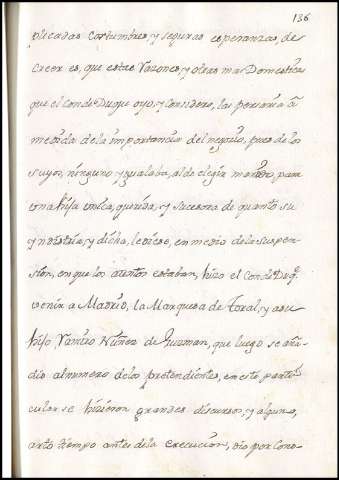 136
plicadas costumbres, y seguras esperanzas, de
creer es, que estas razones, y otras mas Domesticas
que el Conde Duque oyo, y considero, las pensaria a
medida de la importancia del negocio, pues de los
suyos, ninguno ygualaba, al de elegir marido, para
vna hija vnica, querida, y sucesora de quanto su
yndustria, y dicha, le dio se, en medio de la suspen-
sion, en que los atentos estaban, hizo el Conde Duq.
venir a Madrid, la Marquesa de Toral, y a su
hijo Ramiro Nuñez de Guzman, que luego se aña-
dio al numero de los pretendientes, en este parti-
cular se hizieron grandes discursos, y alguno,
arto tiempo antes de la execucion, dio por Cono-